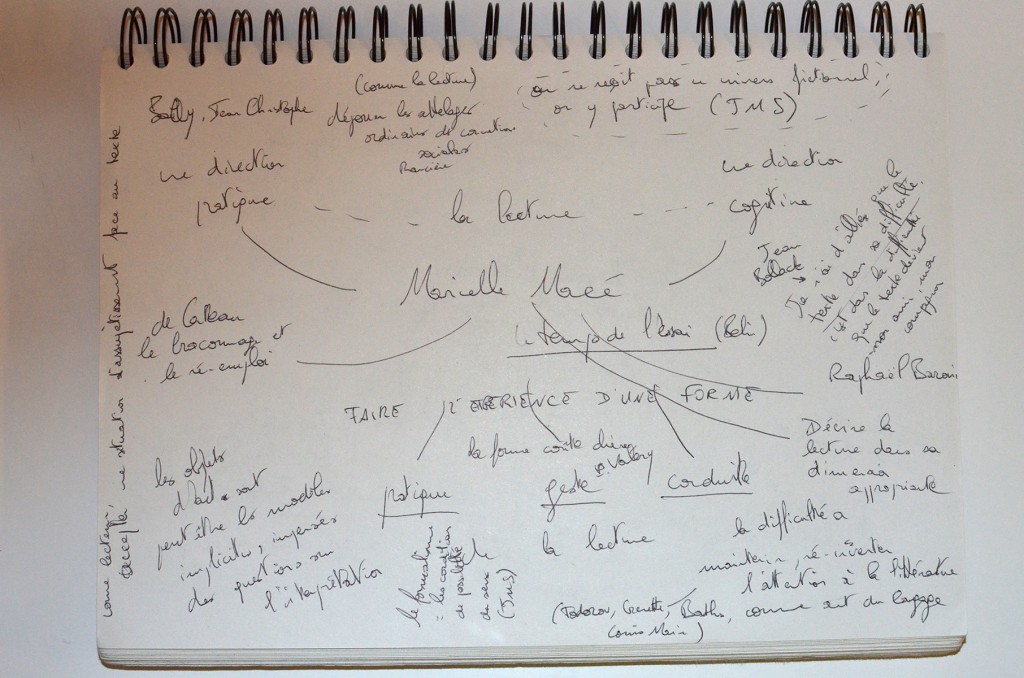 (comme la lecture)
Bailly, Jean Christophe
déjouer les attelages
ordinaires de connections
sociales
Rancière
(on ne reçoit pas un univers fictionnel,
on y participe (JMS)
une direction
pratique
la lecture
une direction
cognitive
Marielle Macé
Le temps de l'essai (Belin)
Jean
Bollack
Je n'ai d'alliés que le
texte dans sa difficulté.
C'est dans la difficulté
que le texte devient
mon ami, mon
compagnon
de Certeau
le braconnage et
le ré-emploi
Raphaël Baroni
FAIRE L'EXPERIENCE D'UNE FORME
Décrire la
lecture dans sa
dimension
appropriante
la forme coûte cher
Valéry
pratique
geste
conduite
la lecture
les objets
d'art sont
peut être les modèles
implicites, imposées
des questions sur
l'interprétation
le formalisme
= les conditions
de possibilité
de sens
(JMS)
la difficulté à
maintenir, ré-inventer
l'attention à la littérature
comme art du langage
(Todorov, Genette, Barthes,
Louis Marin)
comme lecteur,
accepter une situation d'assujettissement face au texte